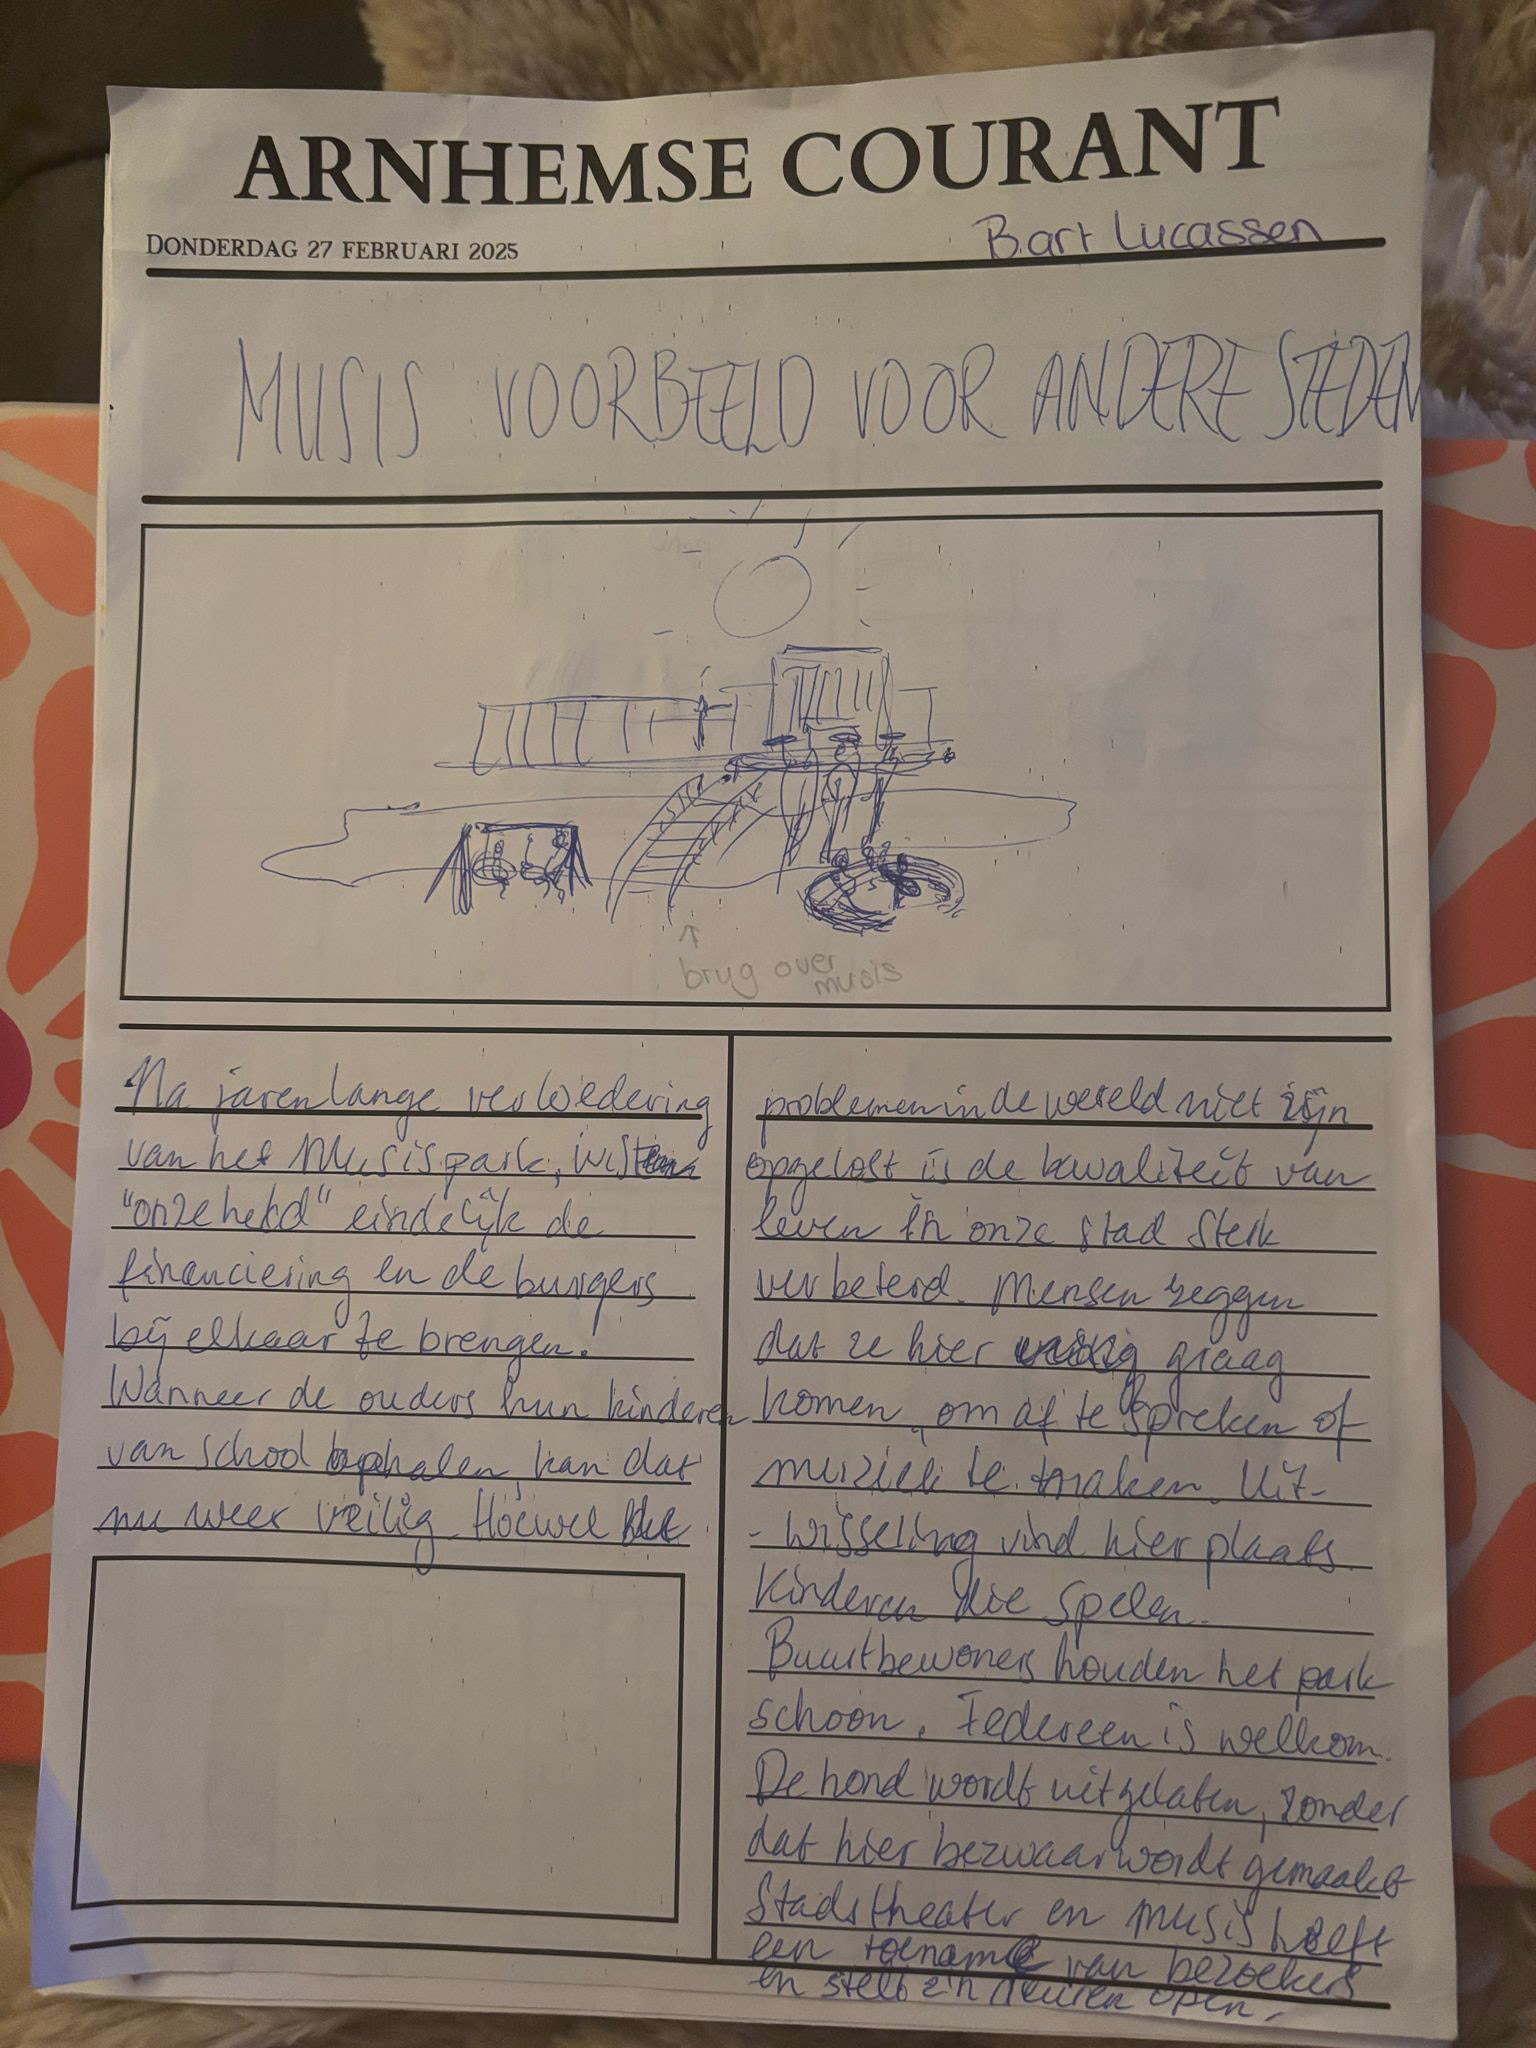 ARNHEMSE COURANT
DONDERDAG 27 FEBRUARI 2025
Bart Lucassen
MUSIS VOORBEELD VOOR ANDERE STEDEN
brug over
musis
Na jarenlange verloedering
van het Musispark, wist
"onze held" eindelijk de
financiering en de burgers
bij elkaar te brengen.
Wanneer de ouders hun kinderen
van school ophalen, kan dat
nu weer veilig. Hoewel het
problemen in de wereld niet zijn
opgelost is de kwaliteit van
leven in onze stad sterk
verbeterd. Mensen zeggen
dat ze hier graag
komen, om af te spreken of
muziek te maken. Uit-
- wisseling vind hier plaats.
Kinderen die spelen.
Buurtbewoners houden het park
schoon. Iedereen is welkom.
De hond wordt uitgelaten, zonder
dat hier bezwaar wordt gemaakt
Stadstheater en Musis heeft
een toename van bezoekers
en stelt z'n deuren open.